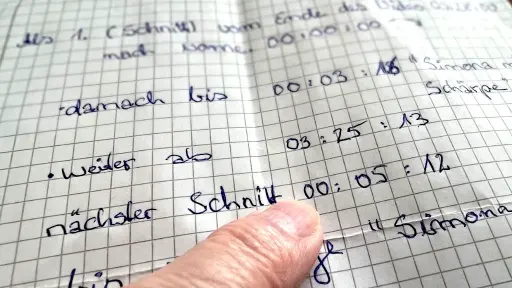 Als 1. (Schnitt) vom Ende des Video
nach vorne. 00:00:00
• danach bis 00:03:16 "Simona m
Schärpe"
• weider ab 03:25:13
nächster Schnitt 00:05:12
"Simona